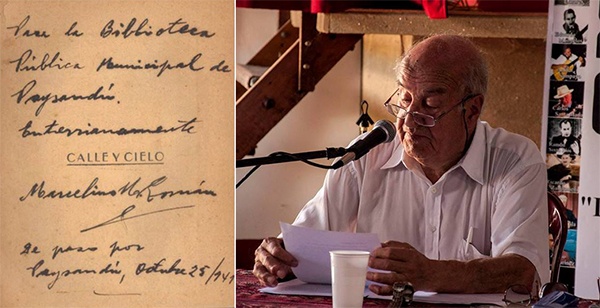 Para la Biblioteca
Pública Municipal de
Paysandú.
Entrerrianamente
CALLE Y CIELO
Marcelino M. Román
De paso por
Paysandú, Octubre 25/941